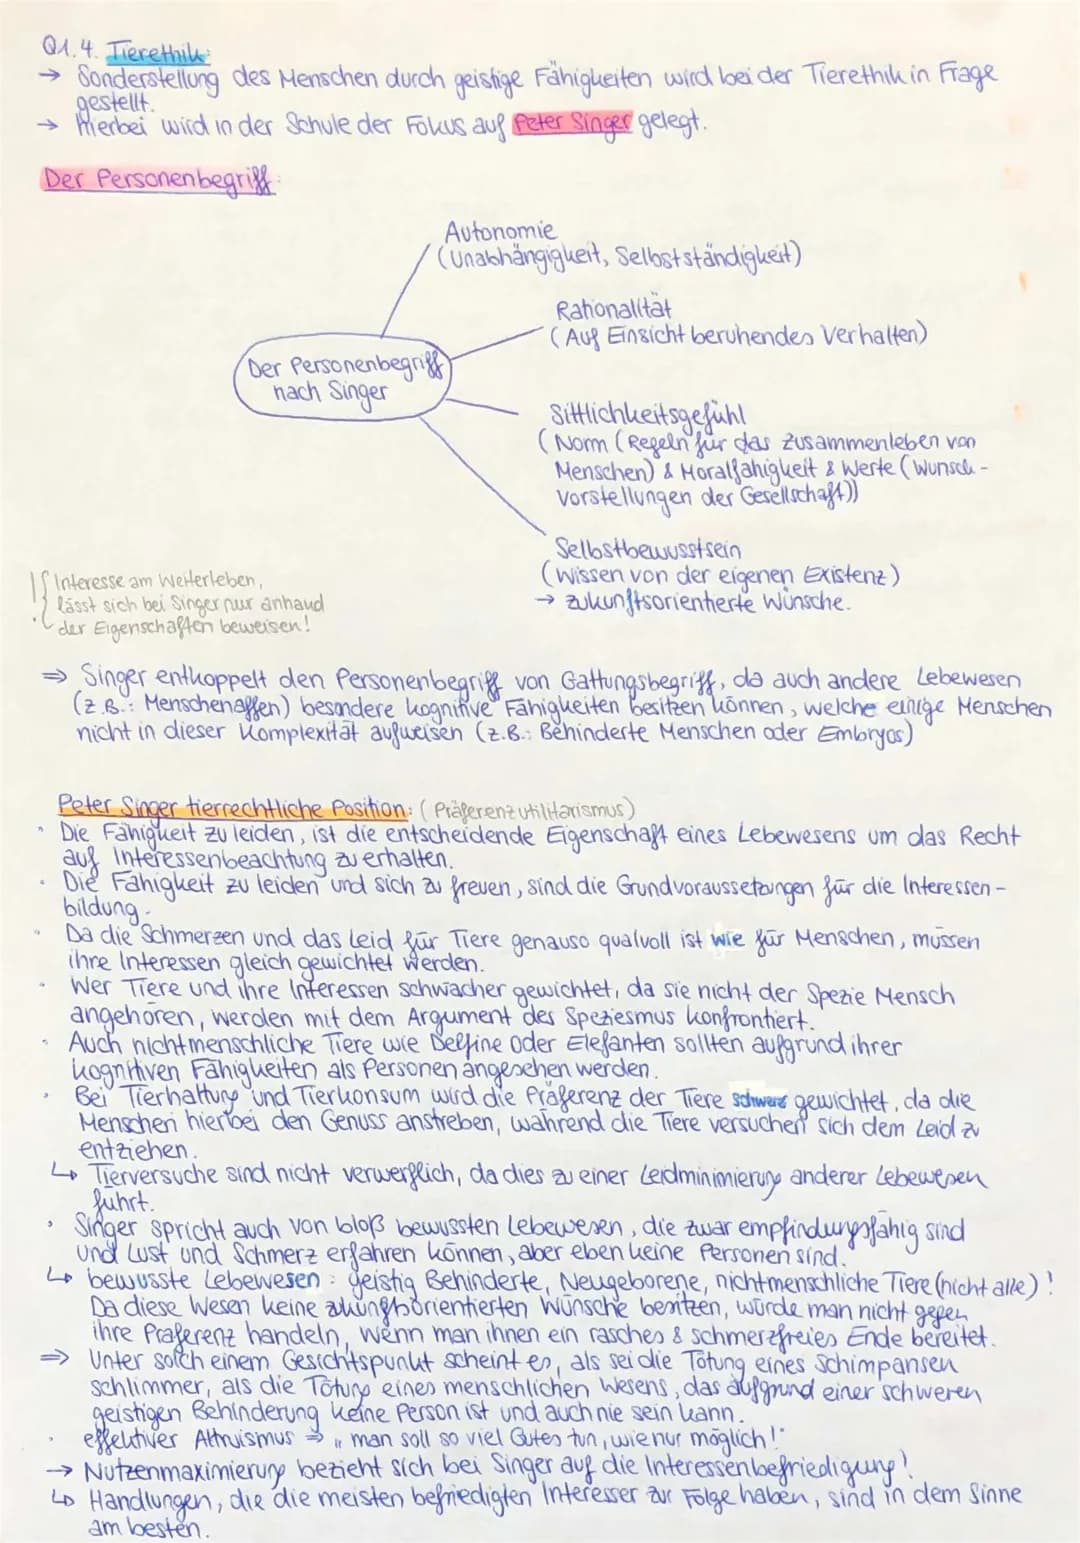 Q1.4. Tierethik:
→ Sonderstellung des Menschen durch geistige Fähigkeiten wird bei der Tierethik in Frage
gestellt.
→ Hierbei wird in der Schule der Fokus auf Peter Singer gelegt.
Der Personenbegriff:
Autonomie
(Unabhängigkeit, Selbstständigkeit)
Rationalität
(Auf Einsicht beruhendes Verhalten)
Der Personenbegriff
nach Singer
Sittlichkeitsgefühl
(Norm (Regeln für das Zusammenleben von
Menschen) & Moralfähigkeit & Werte (Wunsch-
vorstellungen der Gesellschaft))
Selbstbewusstsein
(Wissen von der eigenen Existenz)
→ zukunftsorientierte Wünsche.
Interesse am Weiterleben,
lässt sich bei Singer nur anhand
der Eigenschaften beweisen!
⇒ Singer entkoppelt den Personenbegriff von Gattungsbegriff, da auch andere Lebewesen
(z.B.: Menschenaffen) besondere kognitive Fähigkeiten besitzen können, welche einige Menschen
nicht in dieser Komplexität aufweisen (z.B.: Behinderte Menschen oder Embryos)
Peter Singer tierrechtliche Position: (Präferenzutilitarismus)
• Die Fähigkeit zu leiden, ist die entscheidende Eigenschaft eines Lebewesens um das Recht
auf Interessenbeachtung zu erhalten.
• Die Fähigkeit zu leiden und sich zu freuen, sind die Grundvoraussetzungen für die Interessen-
bildung.
• Da die Schmerzen und das Leid für Tiere genauso qualvoll ist wie für Menschen, müssen
ihre Interessen gleich gewichtet werden.
• Wer Tiere und ihre Interessen schwächer gewichtet, da sie nicht der Spezie Mensch
angehören, werden mit dem Argument des Speziesmus konfrontiert.
• Auch nichtmenschliche Tiere wie Delfine oder Elefanten sollten aufgrund ihrer
kognitiven Fähigkeiten als Personen angesehen werden.
• Bei Tierhaltung und Tierkonsum wird die Präferenz der Tiere schwerer gewichtet, da die
Menschen hierbei den Genuss anstreben, während die Tiere versuchen sich dem Leid zu
entziehen.
↳ Tierversuche sind nicht verwerflich, da dies zu einer Leidminimierung anderer Lebewesen
führt.
• Singer spricht auch von bloß bewussten Lebewesen, die zwar empfindungsfähig sind
und Lust und Schmerz erfahren können, aber eben keine Personen sind.
↳ bewusste Lebewesen: geistig Behinderte, Neugeborene, nichtmenschliche Tiere (nicht alle)!
Da diese Wesen keine zukunftsorientierten Wünsche besitzen, würde man nicht gegen
ihre Präferenz handeln, wenn man ihnen ein rasches & schmerzfreies Ende bereitet.
⇒ Unter solch einem Gesichtspunkt scheint es, als sei die Tötung eines Schimpansen
schlimmer, als die Tötung eines menschlichen Wesens, das aufgrund einer schweren
geistigen Behinderung keine Person ist und auch nie sein kann.
• effektiver Altruismus ⇒ „man soll so viel Gutes tun, wie nur möglich!"
→ Nutzenmaximierung bezieht sich bei Singer auf die Interessenbefriedigung!
↳ Handlungen, die die meisten befriedigten Interesser zur Folge haben, sind in dem Sinne
am besten.